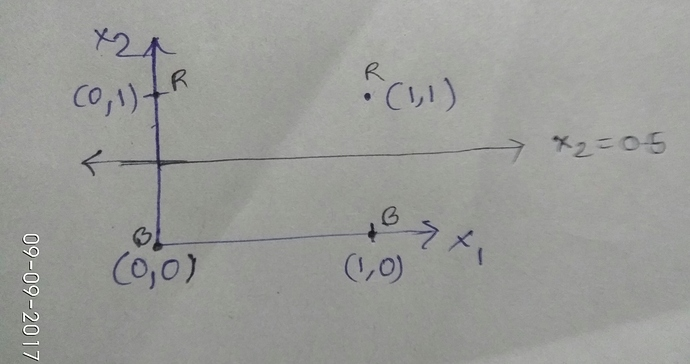 x2
R
(0,1)
R
(1,1)
x2=0.5
B
(0,0)
B
(1,0)
x1
09-09-2017